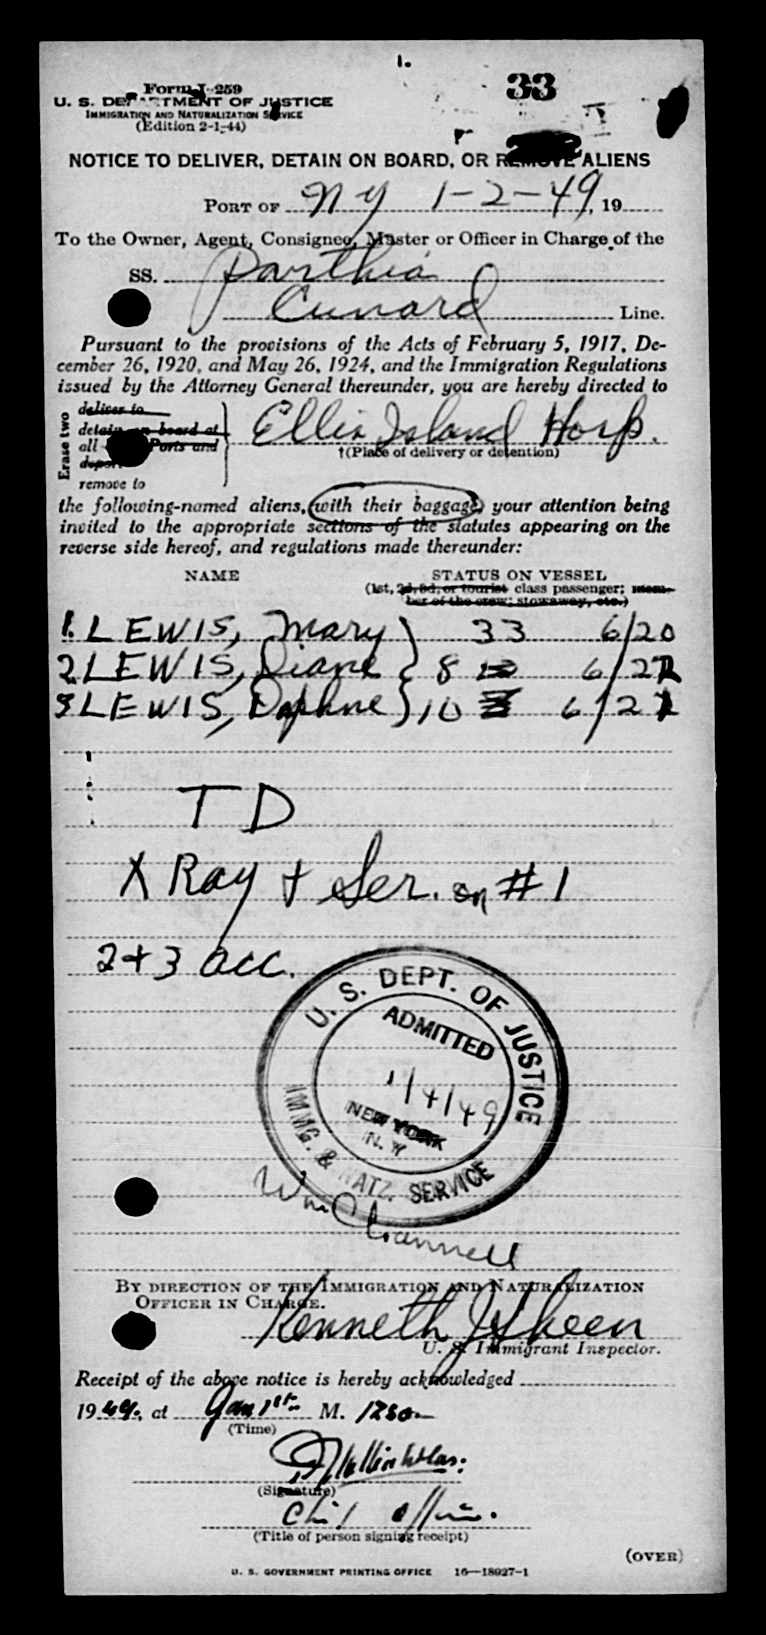 1.
33
Form I-259
U. S. DEPARTMENT OF JUSTICE
IMMIGRATION AND NATURALIZATION SERVICE
(Edition 2-1-44)
NOTICE TO DELIVER, DETAIN ON BOARD, OR REMOVE ALIENS
PORT OF NY 1-2-49, 19
To the Owner, Agent, Consignee, Master or Officer in Charge of the
SS. Parthia
Cunard Line.
Pursuant to the provisions of the Acts of February 5, 1917, De-
cember 26, 1920, and May 26, 1924, and the Immigration Regulations
issued by the Attorney General thereunder, you are hereby directed to
Erase two
deliver to
detain on board at
all Ports and
deport
remove to
Ellis Island Hosp.
†(Place of delivery or detention)
the following-named aliens, with their baggage, your attention being
invited to the appropriate sections of the statutes appearing on the
reverse side hereof, and regulations made thereunder:
NAME STATUS ON VESSEL
(1st, 2d, 3d, or tourist class passenger; mem-
ber of the crew; stowaway, etc.)
1. LEWIS, Mary 33 6/20
2. LEWIS, Diane 8 6/21
3 LEWIS, Daphne 10 6/21
TD
X Ray + Ser. on #1
2+3 acc.
U. S. DEPT. OF JUSTICE
ADMITTED
1/4/49
NEW YORK
N. Y
IMMG. & NATZ. SERVICE
Wm Channell
BY DIRECTION OF THE IMMIGRATION AND NATURALIZATION
OFFICER IN CHARGE.
Kenneth J. Sheen
U. S. Immigrant Inspector.
Receipt of the above notice is hereby acknowledged
1949, at Jan 1st M. 1250
(Time)
(Signature)
Chief Officer.
(Title of person signing receipt)
(OVER)
U. S. GOVERNMENT PRINTING OFFICE 16—18027-1